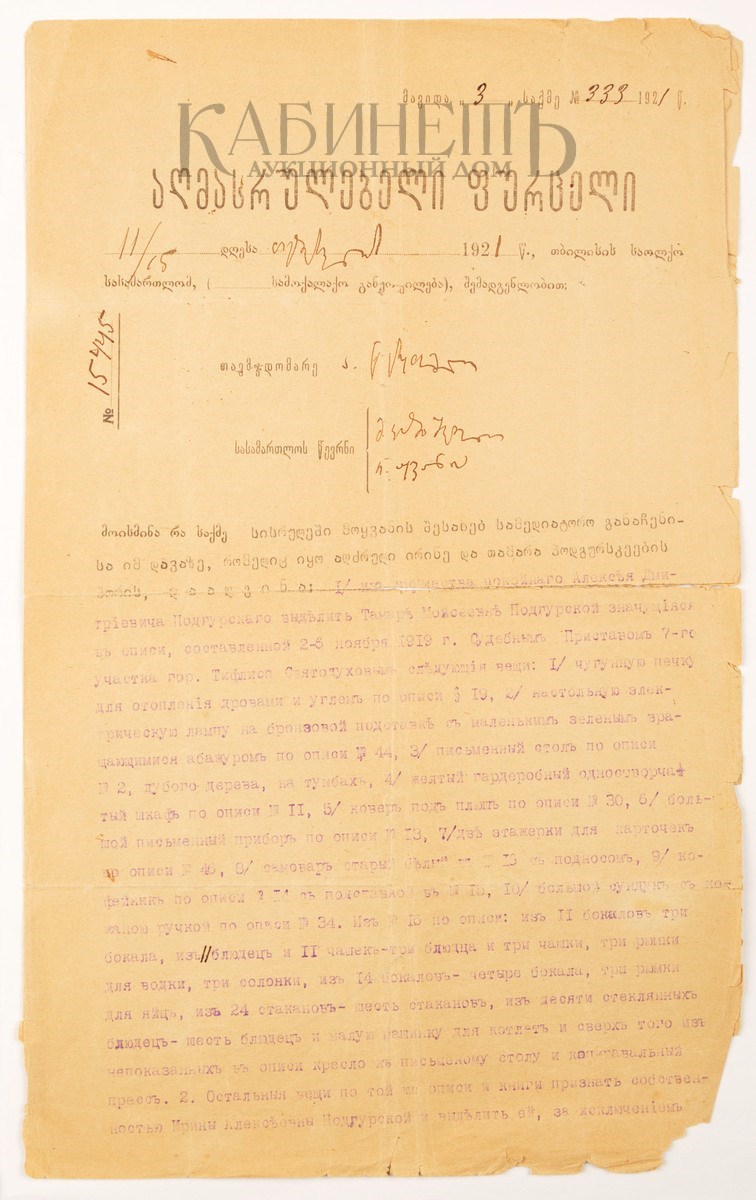 КАБИНЕТЪ
АУКЦИОННЫЙ ДОМ
მაგიდა „ 3 „ საქმე № 333 1921 წ.
აღმასრულებელი ფურცელი
11/15 დღესა 1921 წ., თბილისის საოლქო
სასამართლომ, ( სამოქალაქო განყოფილება), შემადგენლობით:
№ 15445
თავმჯდომარე ა.
სასამართლოს წევრნი
მოისმინა რა საქმე სისრულეში მოყვანის შესახებ სამედიატორო განაჩენი-
სა იმ დავაზე, რომელიც იყო აღძრული ირინე და თამარა პოდგურსკეების
შორის, დაადგინა: 1/ изъ имущества покойнаго Алексѣя Дми-
тріевича Подгурскаго выдѣлить Тамарѣ Моисеевнѣ Подгурской значущіяся
въ описи, составленной 2-5 ноября 1919 г. Судебнымъ Приставомъ 7-го
участка гор. Тифлиса Святодуховымъ слѣдующія вещи: 1/ чугунную печку
для отопленія дровами и углемъ по описи § 19, 2/ настольную элек-
трическую лампу на бронзовой подставкѣ съ маленькимъ зеленымъ вра-
щающимися абажуромъ по описи № 44, 3/ письменный столъ по описи
№ 2, дубого дерева, на тумбахъ, 4/ желтый гардеробный одностворча-
тый шкафъ по описи № II, 5/ коверъ подъ плюшъ по описи № 30, 6/ боль-
шой письменный приборъ по описи № 13, 7/двѣ этажерки для карточекъ
по описи № 46, 8/ самоваръ старый № 13 съ подносомъ, 9/ ко-
фейникъ по описи № 14 съ подставкой въ № 18, 10/ большой сундукъ съ кож
жаною ручкой по описи № 34. Изъ № 15 по описи: изъ II бокаловъ три
бокала, изъ 11 блюдецъ и II чашекъ-три блюдца и три чашки, три рюмки
для водки, три солонки, изъ 14 бокаловъ- четыре бокала, три рюмки
для яйцъ, изъ 24 стакановъ- шесть стакановъ, изъ десяти стеклянныхъ
блюдецъ- шесть блюдецъ и малую машинку для котлетъ и сверхъ того изъ
непоказанныхъ въ описи кресло къ письменому столу и копировальный
прессъ. 2. Остальныя вещи по той же описи и книги признать собствен-
ностью Ирины Алексѣевны Подгурской и выдѣлить ей, за исключеніемъ